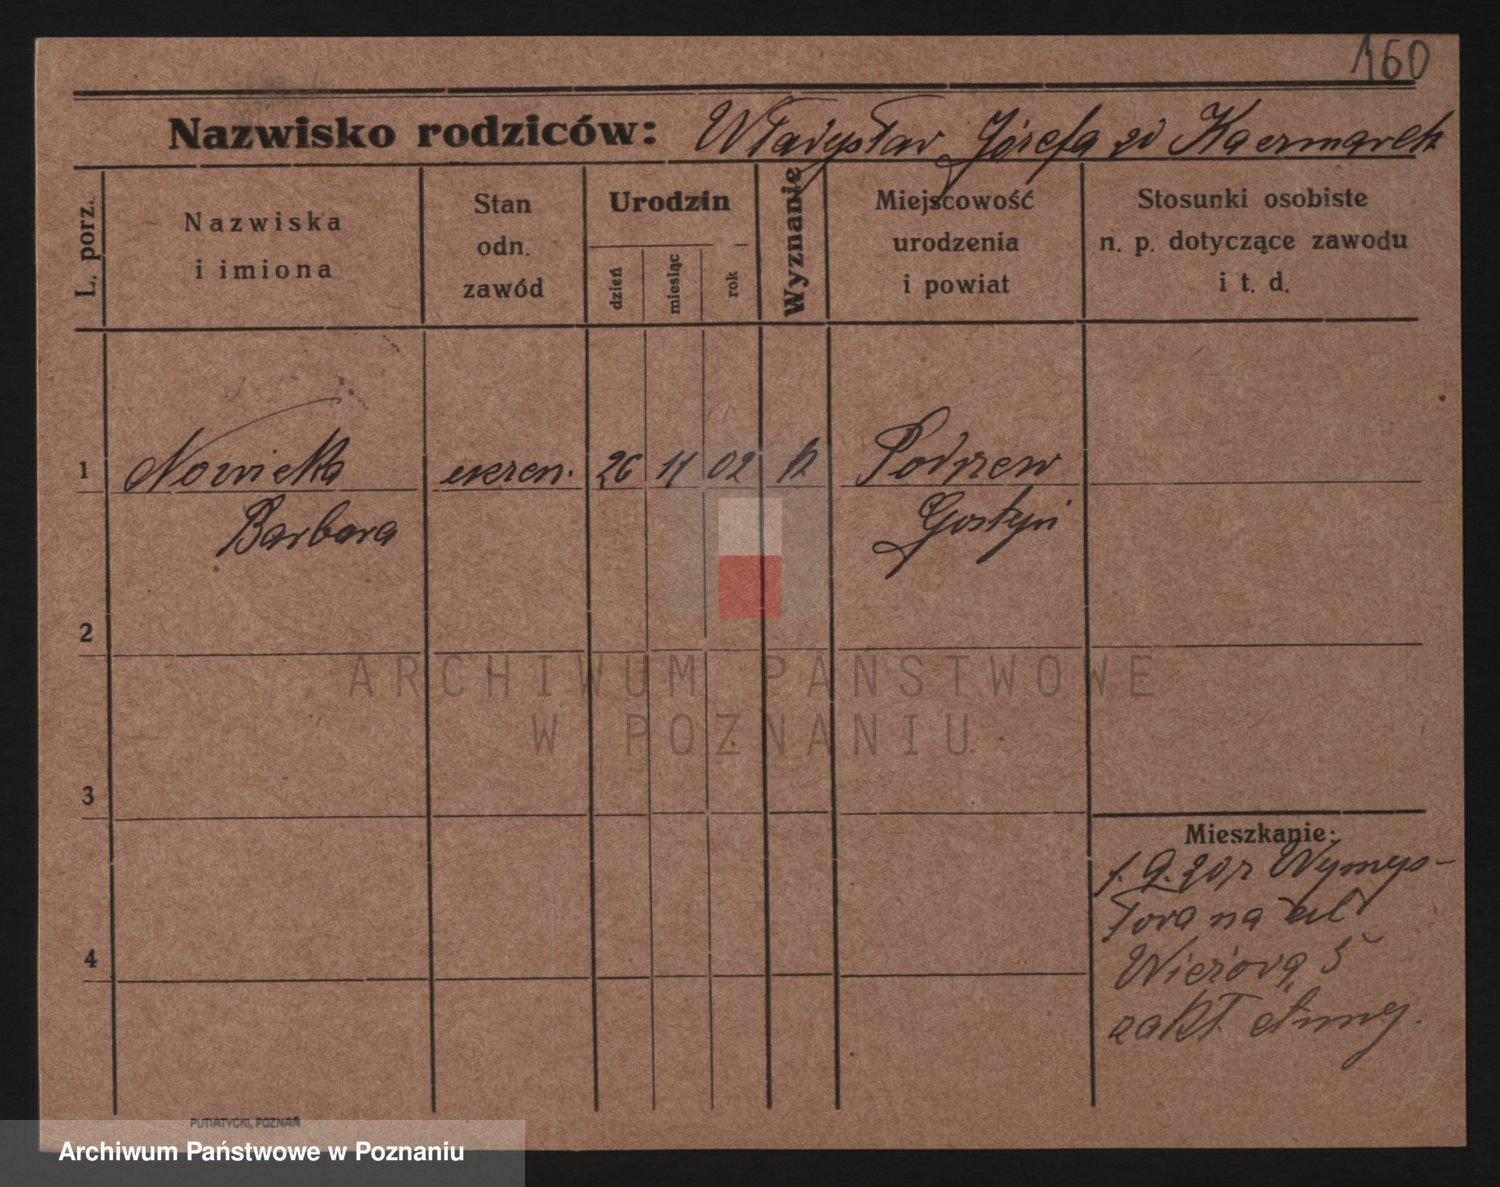 160
Nazwisko rodziców: Władysław, Józefa zd Kaczmarek
L. porz.
Nazwiska
i imiona
Stan
odn.
zawód
Urodzin
dzień
miesiąc
rok
Wyznanie
Miejscowość
urodzenia
i powiat
Stosunki osobiste
n. p. dotyczące zawodu
i t. d.
1
Nowicka
Barbara
uczen.
26
11
02
k
Podrzew
Gostyń
2
ARCHIWUM PAŃSTWOWE
W POZNANIU
3
Mieszkanie:
1. 9. 20 z Wymys-
łowa na ul
Wieżową 5
zakł.
4
PUTIATYCKI, POZNAŃ
Archiwum Państwowe w Poznaniu